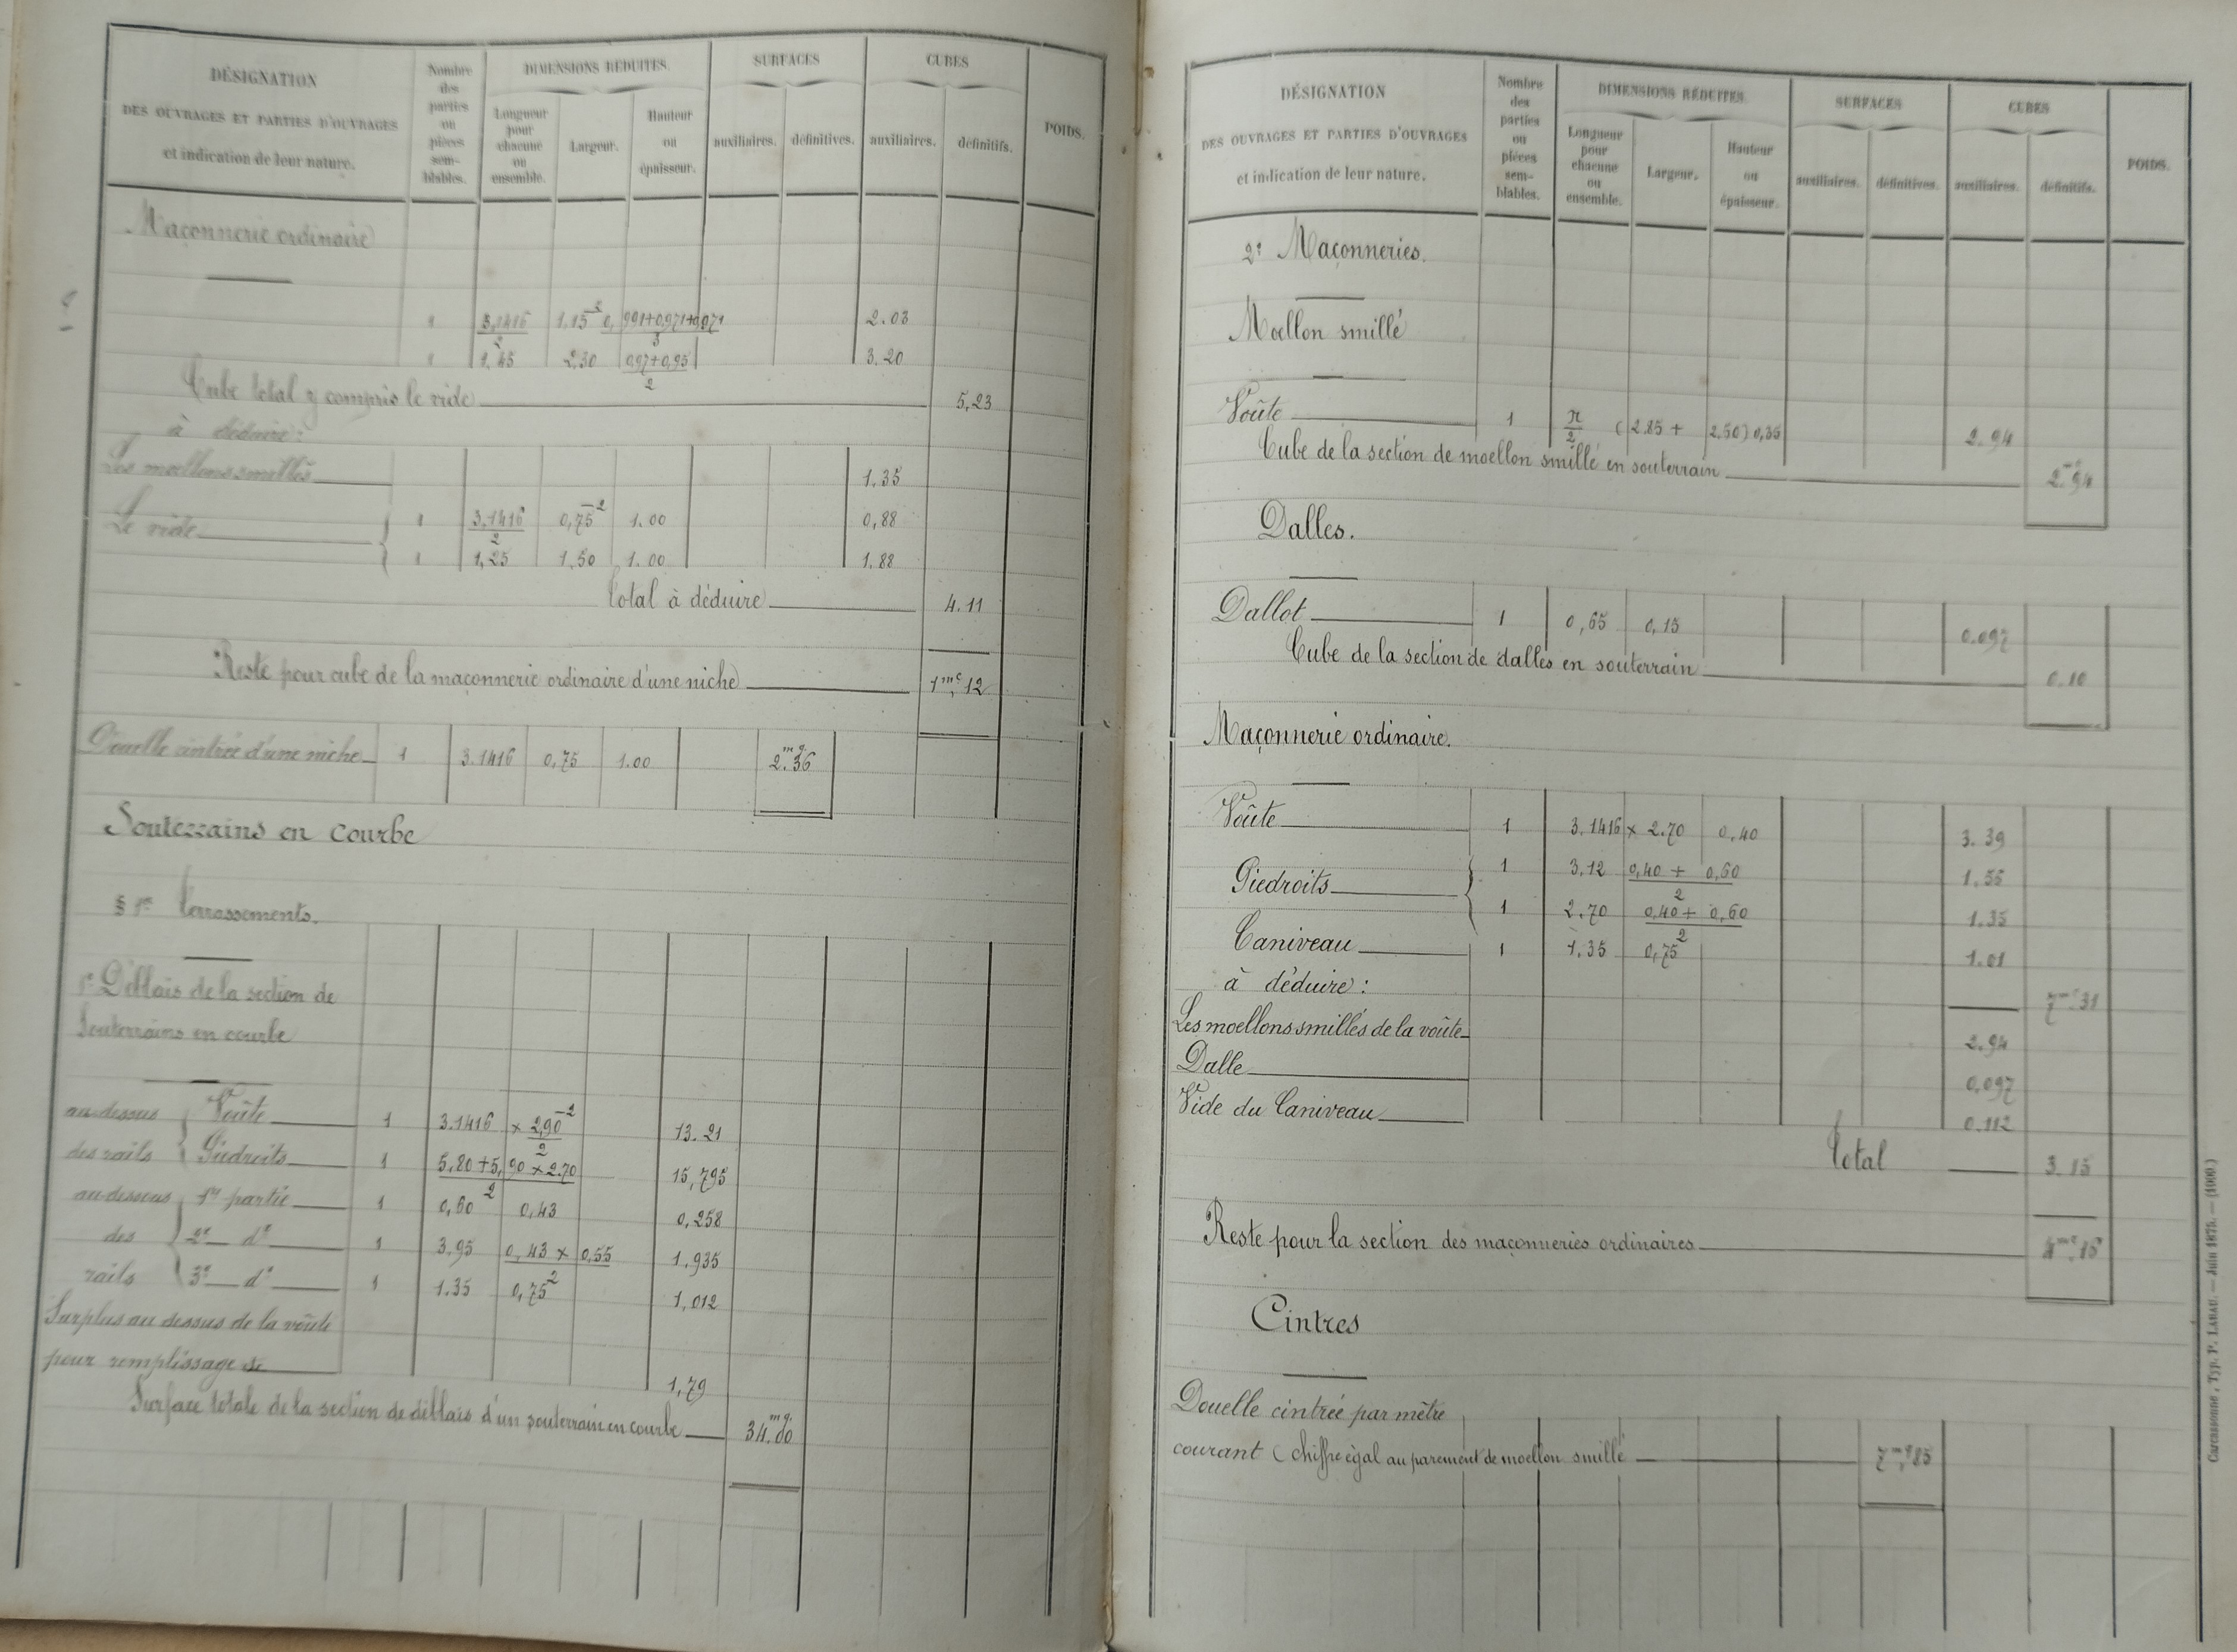 DÉSIGNATION
DES OUVRAGES ET PARTIES D'OUVRAGES
et indication de leur nature.
Nombre des parties ou pièces sem- blables.
DIMENSIONS RÉDUITES.
Longueur pour chacune ou ensemble.
Largeur.
Hauteur ou épaisseur.
SURFACES
auxiliaires. définitives.
CUBES
auxiliaires. définitifs.
POIDS.
Maçonnerie ordinaire
1 3,1416/2 1.15² 0,991+0,971+0,971/3 2.03
1 1,45 2,30 0,97+0,95/2 3.20
Cube total y compris le vide 5,23
à déduire :
Les moellons smillés 1.35
Le vide 1 3,1416/2 0,75² 1.00 0,88
1 1,25 1,50 1.00 1.88
Total à déduire 4.11
Reste pour cube de la maçonnerie ordinaire d'une niche 1mc,12
Douelle cintrée d'une niche 1 3.1416 0,75 1.00 2mq.36
Souterrains en courbe
§ 1er Terrassements.
1° Déblais de la section de
Souterrains en courbe
au-dessus des rails { Voûte 1 3.1416 × 2,90²/2 13.21
Piedroits 1 5,80+5,90 × 2.70/2 15,795
au-dessous des rails { 1re partie 1 0,60 0,43 0,258
2e d° 1 3,95 0,43 × 0,55/2 1,935
3e d° 1 1.35 0,75 1,012
Surplus au dessus de la voûte
pour remplissage &c 1,79
Surface totale de la section de déblais d'un souterrain en courbe 34mq.00
DÉSIGNATION
DES OUVRAGES ET PARTIES D'OUVRAGES
et indication de leur nature.
Nombre des parties ou pièces sem- blables.
DIMENSIONS RÉDUITES.
Longueur pour chacune ou ensemble.
Largeur.
Hauteur ou épaisseur.
SURFACES
auxiliaires. définitives.
CUBES
auxiliaires. définitifs.
POIDS.
2° Maçonneries.
Moellon smillé
Voûte 1 π/2 (2.85 + 2.50) 0,35 2.94
Cube de la section de moellon smillé en souterrain 2mc.94
Dalles.
Dallot 1 0,65 0,15 0.097
Cube de la section de dalles en souterrain 0.10
Maçonnerie ordinaire.
Voûte 1 3.1416 × 2.70 0,40 3.39
Piedroits { 1 3.12 0,40 + 0,60/2 1.55
1 2.70 0,40 + 0,60/2 1.35
Caniveau 1 1.35 0,75 1.01
à déduire : 7mc.31
Les moellons smillés de la voûte 2.94
Dalle 0,097
Vide du Caniveau 0.112
Total 3.15
Reste pour la section des maçonneries ordinaires 4mc.15
Cintres
Douelle cintrée par mètre
courant (chiffre égal au parement de moellon smillé 7mq,85
Carcassonne, Typ. P. LABAU. — Juin 1875. — (1000.)